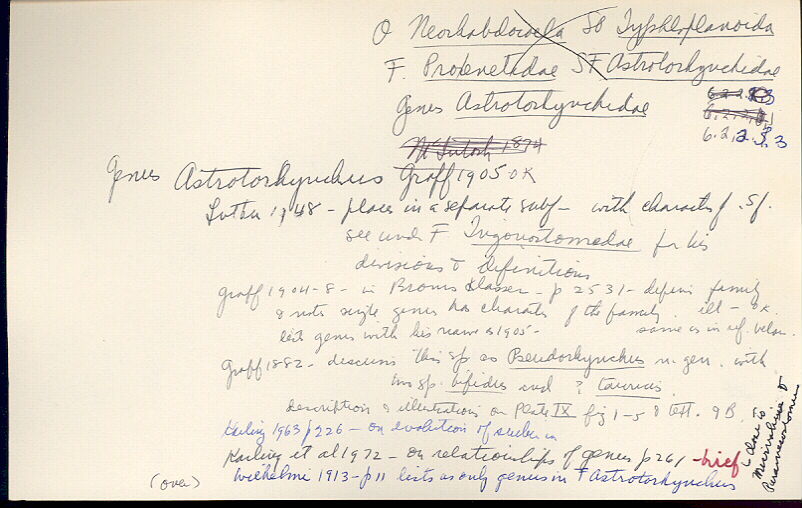 O Neorhabdocoela SO Typhloplanoida
F. Proxenetidae SF Astrotorhynchidae
Genus Astrotorhynchidae
6.2.2.
6.2.2.
6.2.2.3.3
McIntosh 1874
Genus Astrotorhynchus Graff 1905 OK
Luther 1948 - places in a separate subf - with charact of. Sf.
see under F Trigonostomidae for his
divisions & definitions
Graff 1904-8 - in Bronns Klassen - p 2531 - defines family
& notes single genus has characters of the family. ill - ok
lists genus with his name & 1905 - same as in ref. below.
Graff 1882 - discusses this sp as Pseudorhynchus n. gen. with
two sp. bifidus and ? taurus.
description & illustrations on Plate IX fig 1-5 & text. 9B.
Karling 1963 p 226 - on evolution of
Karling et al 1972 - on relationships of genus p 261 - brief
close to
Wilhelmi 1913 - p 11 lists as only genus in F Astrotorhynchus
(over)